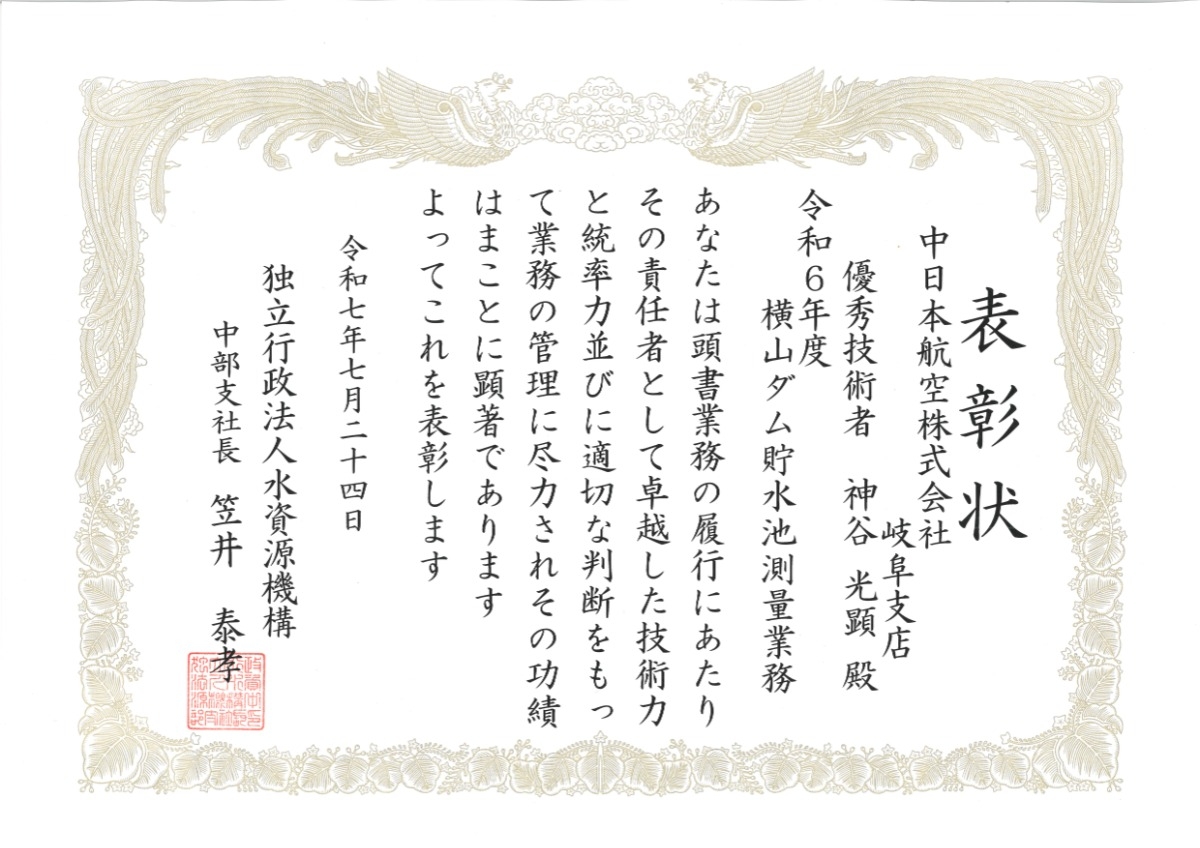 表彰状
中日本航空株式会社
岐阜支店
優秀技術者　神谷　光顕　殿
令和６年度
横山ダム貯水池測量業務
あなたは頭書業務の履行にあたり
その責任者として卓越した技術力
と統率力並びに適切な判断をもっ
て業務の管理に尽力されその功績
はまことに顕著であります
よってこれを表彰します
令和七年七月二十四日
独立行政法人水資源機構
中部支社長　笠井　泰孝